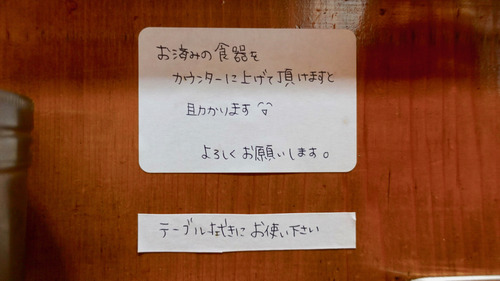 お済みの食器を
カウンターに上げて頂けますと
助かります
よろしくお願いします。
テーブル拭きにお使い下さい